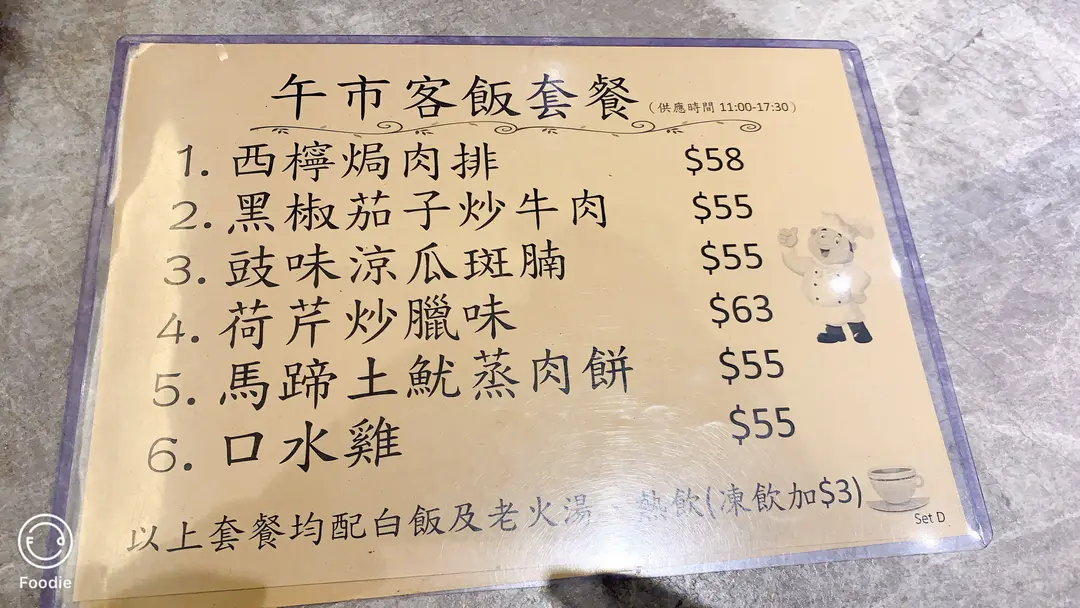 午市客飯套餐 (供應時間 11:00-17:30)
1. 西檸焗肉排 $58
2. 黑椒茄子炒牛肉 $55
3. 豉味涼瓜斑腩 $55
4. 荷芹炒臘味 $63
5. 馬蹄土魷蒸肉餅 $55
6. 口水雞 $55
以上套餐均配白飯及老火湯、熱飲(凍飲加$3)
Set D
Foodie